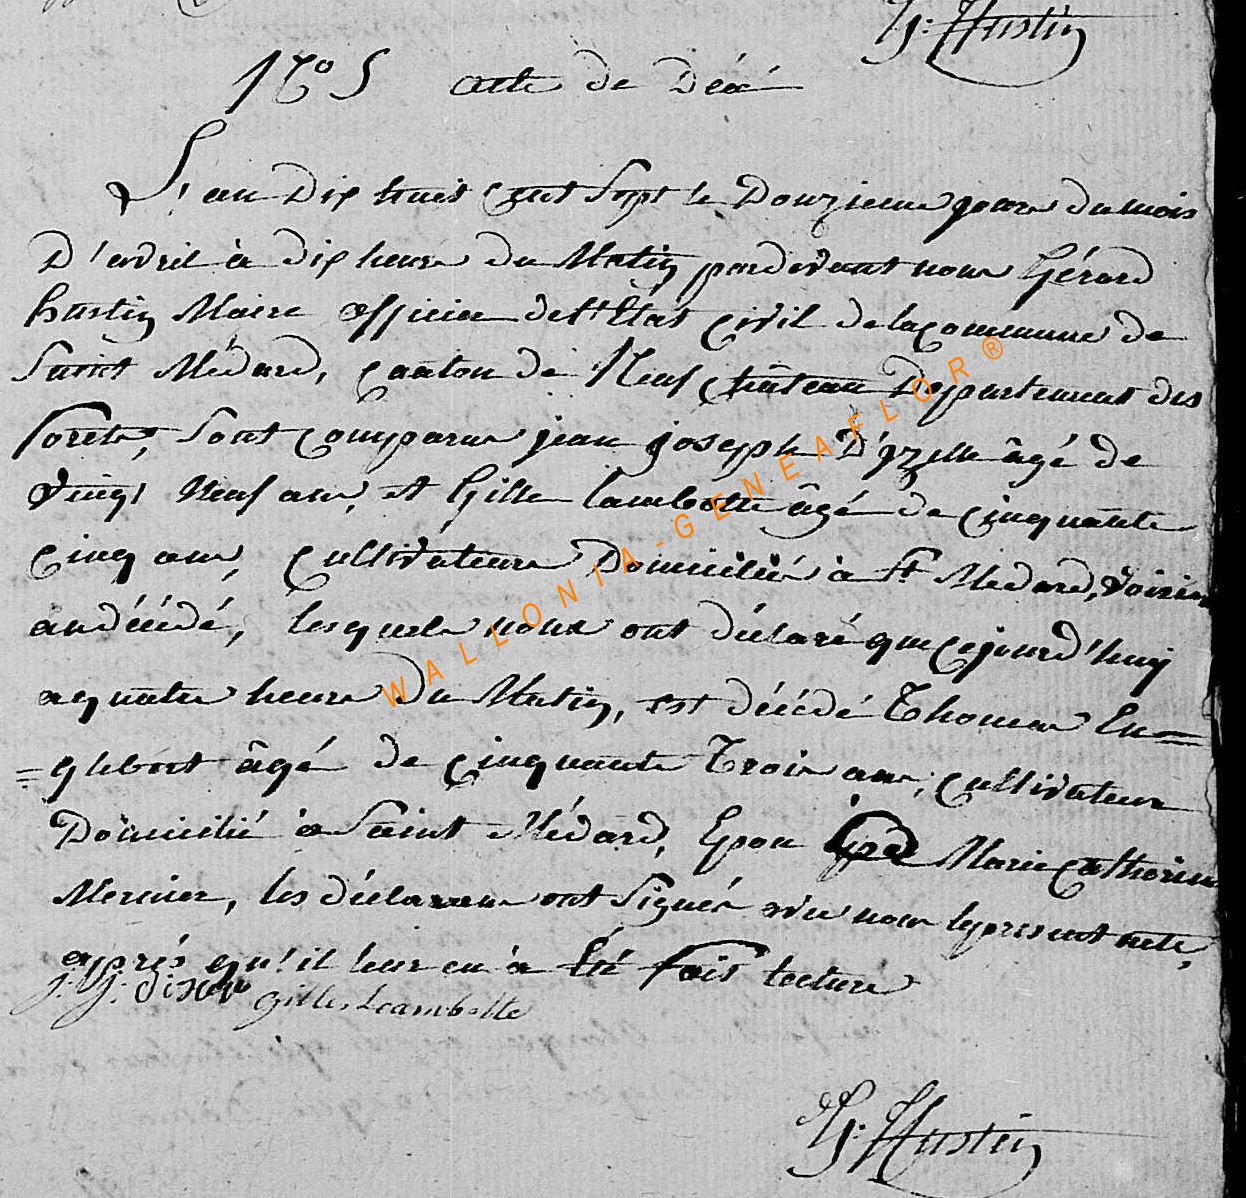 G: Hustin
No 5 acte de Décé
L'an Dix huit cent Sept le Douzieme jour du mois
D'avril à dix heure du Matin pardevant nous Gérard
hustin Maire officier de l'Etat civil de la commune de
Saint Médard, canton de Neuf château Departement des
forets, sont comparus jean joseph D'izelle âgé de
vingt Neuf ans, et Gille Lambotte âgé de cinquante
cinq ans, cultivateurs Domiciliés à St Médard, voisins
au décédé, lesquels nous ont déclaré que cejourd'huy
a quatre heure du Matin, est décédé Thomas En=
=glebert âgé de cinquante Trois ans, cultivateur
Domicilié à Saint Médard, Epou Marie Catherine
Mernier, les déclarans ont Signés avec nous le present acte,
après qu'il leur en à Eté fait lecture
j. j. Gilles Lambotte
G: Hustin
WALLONIA-GENEAFLOR®